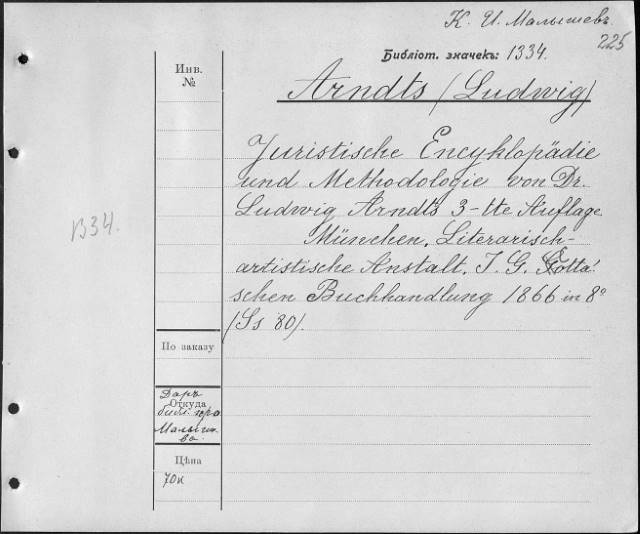 К. И. Малышевъ.
225
Библіот. значекъ: 1334.
Инв.
№
Arndts (Ludwig)
Juristische Encyklopädie
und Methodologie von Dr.
Ludwig Arndts 3-tte Auflage
München, Literarisch-
artistische Anstalt, J. G. Cotta'
schen Buchhandlung 1866 in 8°
(Ss 80).
1334.
По заказу
Даръ
Откуда
библ. про
Малыше
ва.
Цѣна
70к